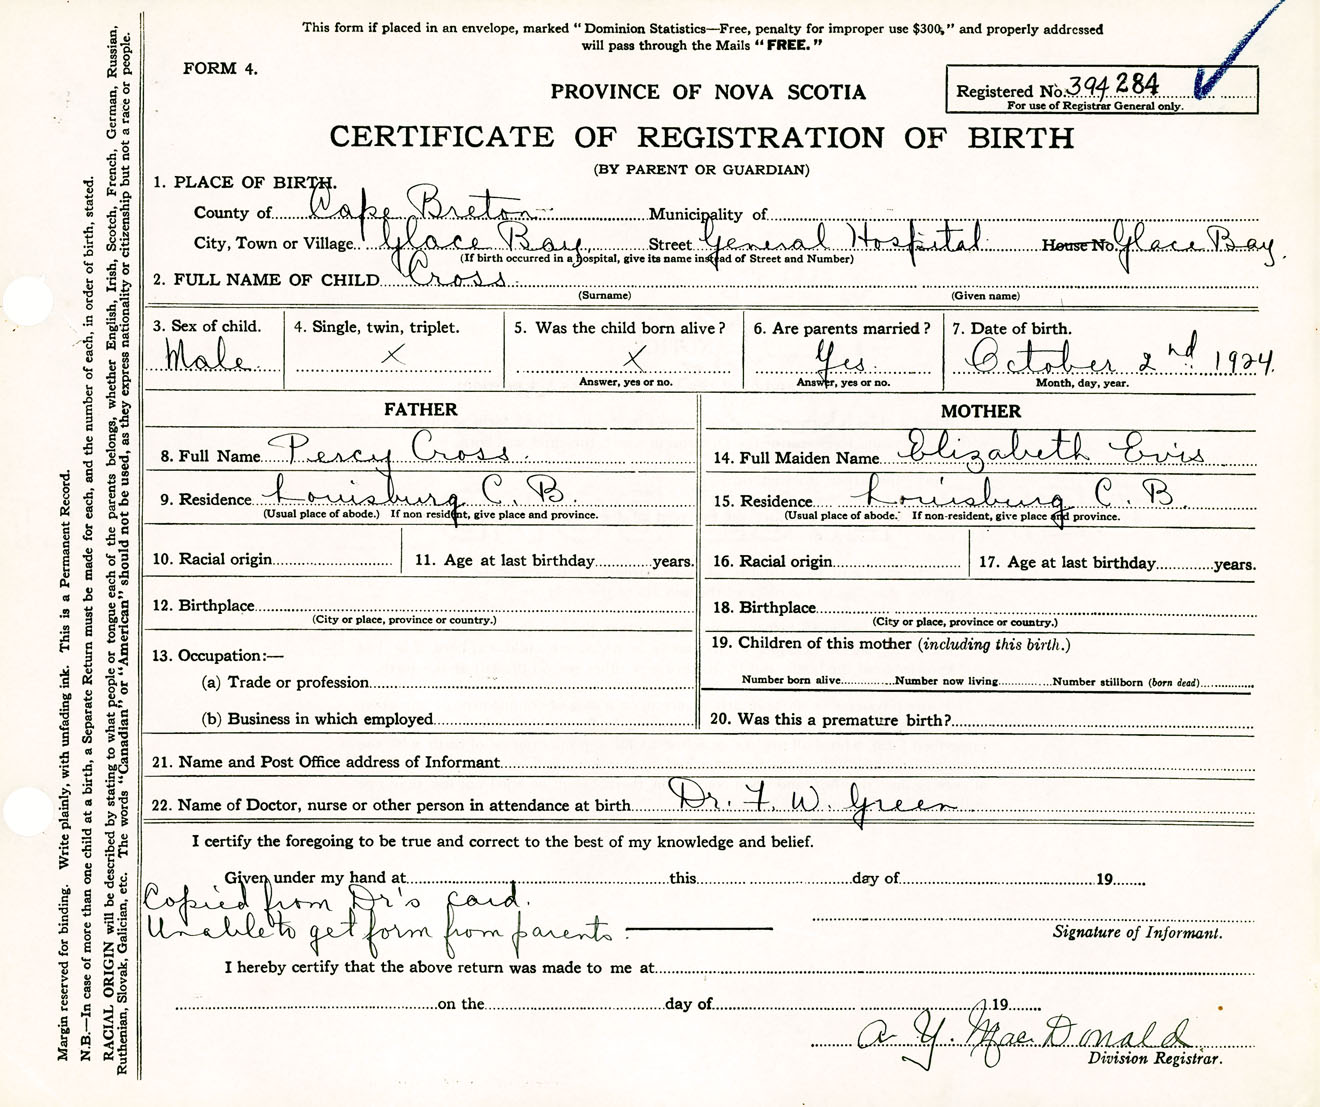 This form if placed in an envelope, marked "Dominion Statistics—Free, penalty for improper use $300," and properly addressed
will pass through the Mails "FREE."
FORM 4.
Registered No. 394284
For use of Registrar General only.
PROVINCE OF NOVA SCOTIA
CERTIFICATE OF REGISTRATION OF BIRTH
(BY PARENT OR GUARDIAN)
1. PLACE OF BIRTH.
County of Cape Breton Municipality of
City, Town or Village Glace Bay Street General Hospital House No Glace Bay.
(If birth occurred in a hospital, give its name instead of Street and Number)
2. FULL NAME OF CHILD Cross
(Surname) (Given name)
3. Sex of child. 4. Single, twin, triplet. 5. Was the child born alive? 6. Are parents married? 7. Date of birth.
Male X X Yes October 2nd 1924.
Answer, yes or no. Answer, yes or no. Month, day, year.
FATHER MOTHER
8. Full Name Percy Cross. 14. Full Maiden Name Elizabeth Evis
9. Residence Louisburg C. B. 15. Residence Louisburg C. B
(Usual place of abode.) If non resident, give place and province. (Usual place of abode. If non-resident, give place and province.
10. Racial origin 11. Age at last birthday years. 16. Racial origin 17. Age at last birthday years.
12. Birthplace 18. Birthplace
(City or place, province or country.) (City or place, province or country.)
19. Children of this mother (including this birth.)
13. Occupation:—
(a) Trade or profession Number born alive Number now living Number stillborn (born dead)
(b) Business in which employed 20. Was this a premature birth?
21. Name and Post Office address of Informant
22. Name of Doctor, nurse or other person in attendance at birth Dr. F. W. Green
I certify the foregoing to be true and correct to the best of my knowledge and belief.
Given under my hand at this day of 19
Copied from Dr's card.
Unable to get form from parents.
Signature of Informant.
I hereby certify that the above return was made to me at
on the day of 19
A. Y. MacDonald
Division Registrar.
Margin reserved for binding. Write plainly, with unfading ink. This is a Permanent Record.
N.B.—In case of more than one child at a birth, a Separate Return must be made for each, and the number of each, in order of birth, stated.
RACIAL ORIGIN will be described by stating to what people or tongue each of the parents belongs, whether English, Irish, Scotch, French, German, Russian,
Ruthenian, Slovak, Galician, etc. The words "Canadian" or "American" should not be used, as they express nationality or citizenship but not a race or people.